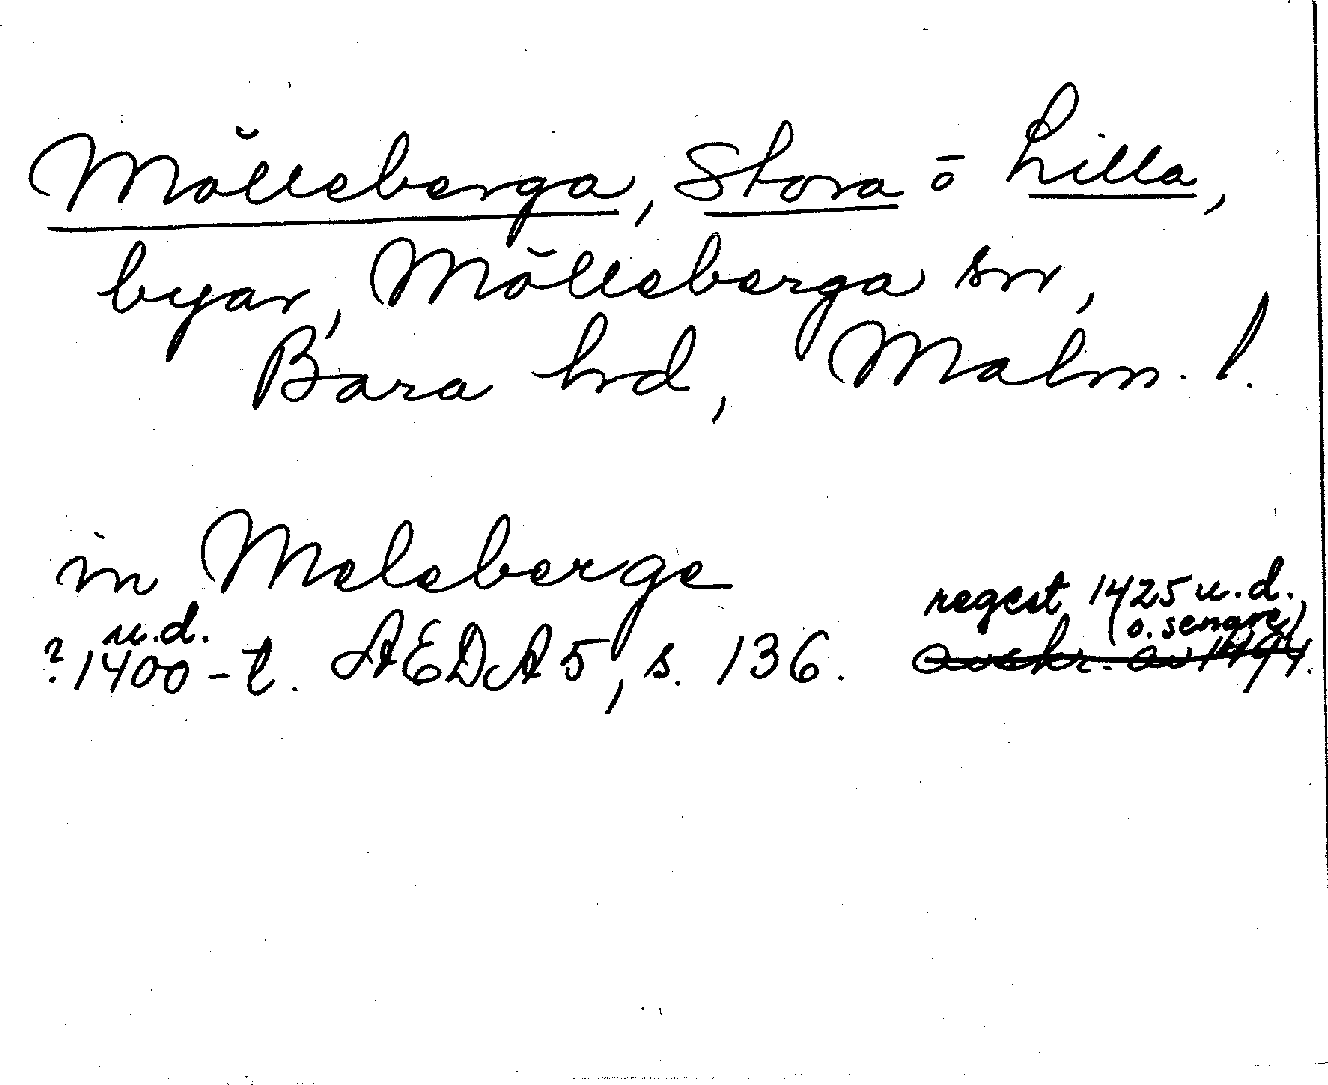 Mölleberga, Stora o Lilla,
byar, Mölleberga sn,
Bara hd, Malm. l.
in Meleberge
regest 1425 u.d.
u.d.
(o. senare)
? 1400-t. AEDA 5, s. 136. avskr. av 1494.